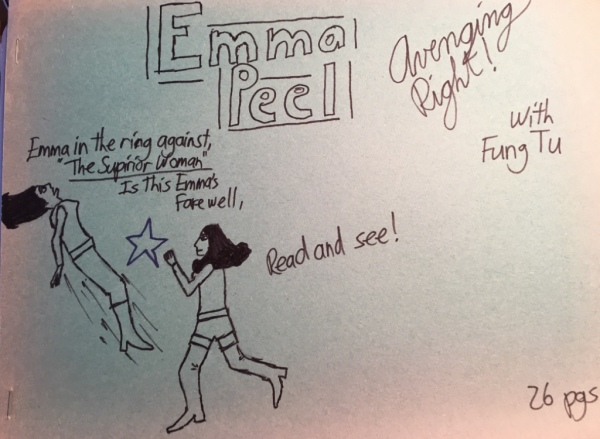 Emma
Peel
Avenging
Right!
With
Fung Tu
Emma in the ring against,
"The Supirior Woman"
Is this Emma's
Farewell,
Read and see!
26 pgs